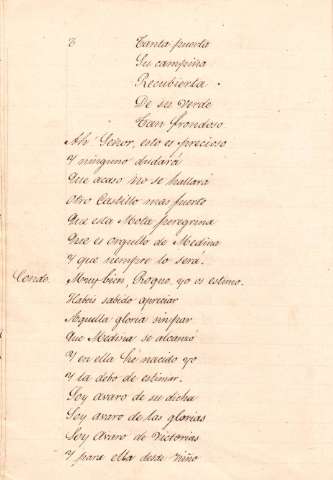 Y Tanta puerta
Su campiña
Recubierta
De su verde
Tan frondoso
Ah Señor, esto es precioso
Y ninguno dudará
Que acaso no se hallará
Otro Castillo mas fuerte
Que esta Mota peregrina
Que es orgullo de Medina
Y que siempre lo será.
Conde. Muy bien, Roque, yo os estimo.
Habeis sabido apreciar
Aquella gloria sin par
Que Medina se alcanzó
Y en ella he nacido yo
Y la debo de estimar.
Soy avaro de su dicha
Soy avaro de las glorias
Soy Avaro de Victorias
Y para ella desde niño